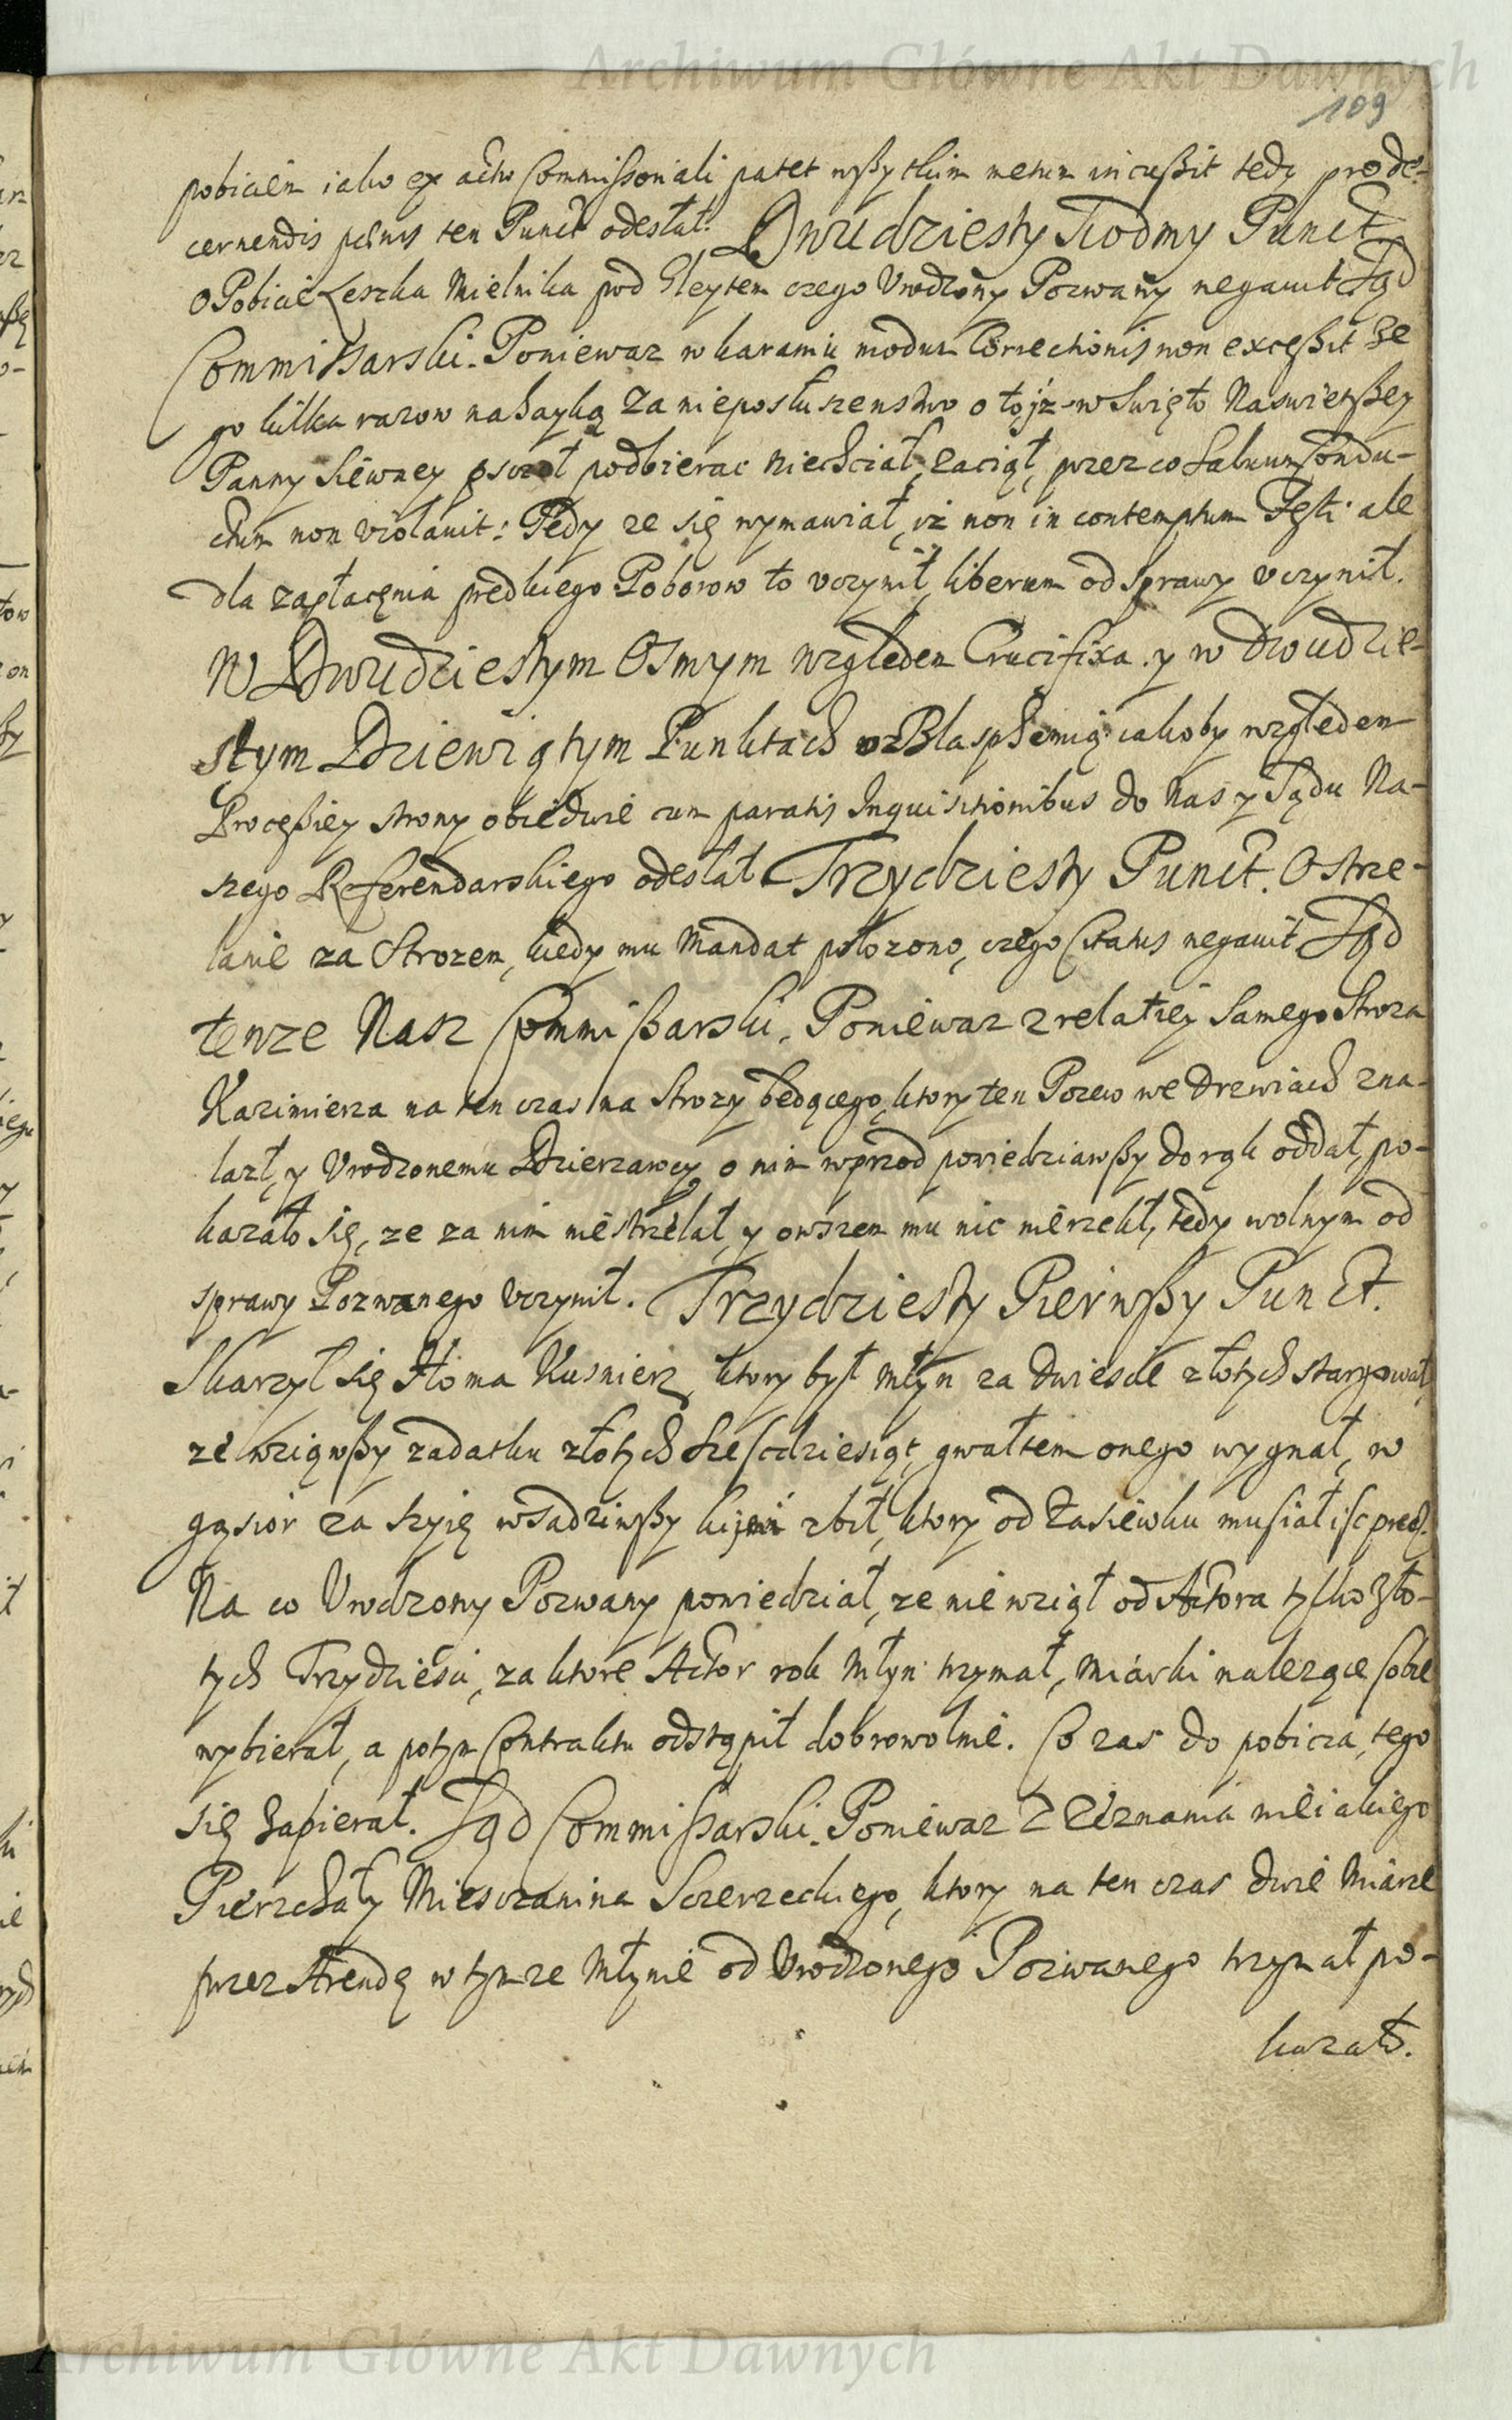 Archiwum Główne Akt Dawnych
109
pobiciem iako ex actu Commissoriali patet wszytkim metum incussit tedy pro de-
cernendis pœnis ten Punct odesłał. Dwudziesty Siodmy Punct
o Pobicie Leszka Mielnika pod Gleytem czego Urodzony Pozwany negavit Sąd
Commissarski. Poniewaz w karaniu modum Correctionis non excessit ze
go kilka razow nahayką za nieposłuszenstwo o to iz w Swięto Naswietszey
Panny Siewney pszczoł podbierac niechciał, zaciął, przez co salvum Condu-
ctum non violavit: Tedy ze się wymawiał, iz non in contemptum Festi ale
dla zapłacenia prędkiego Poborow to uczynił, liberum od Sprawy uczynił.
W Dwudziestym Osmym względem Crucifixa y w dwudzie-
stym Dziewiątym Punktach o Blasphemią iakoby względem
Processiey strony obiedwie cum paratis Inquisitionibus do Nas y Sądu Na-
szego Referendarskiego odesłał Trzydziesty Punct. O strze-
lanie za Strozem, kiedy mu Mandat połozono, czego Citatus negavit Sąd
tenze Nasz Commissarski, Poniewaz z relatiey samego Stroza
Kazimierza na ten czas na Strozy będącego, ktory ten Pozew we Drzwiach zna-
lazł, y Urodzonemu Dzierzawcy o nim wprzod powiedziawszy do rąk oddał, po-
kazało się, ze za nim niestrzelał, y owszem mu nic nierzekł, tedy wolnym od
sprawy Pozwanego uczynił. Trzydziesty Pierwszy Punct.
Skarzył się Homa Kusnierz, ktory był Młyn za dwiescie złotych starzował
ze wziąwszy zadatku złotych szescdziesiąt, gwałtem onego wygnał, w
gąsior za szyię wsadziwszy kijmi zbił, ktory od Zasiewku musiał isc precz.
Na co Urodzony Pozwany powiedział, ze nie wziął od Actora tylko Zło-
tych Trzydziesci, za ktore Actor rok Młyn trzymał, miarki nalezące sobie
wybierał, a potym Contraktu odstąpił dobrowolnie. Co zas do pobicia, tego
się zapierał. Sąd Commissarski. Poniewaz z Zeznania nieiakiego
Pierzchały Miesczanina Sczerzeckiego, ktory na ten czas dwie Miarze
przez Arendę w tymze Młynie od Urodzonego Pozwanego trzymał po-
kazało.
Archiwum Główne Akt Dawnych